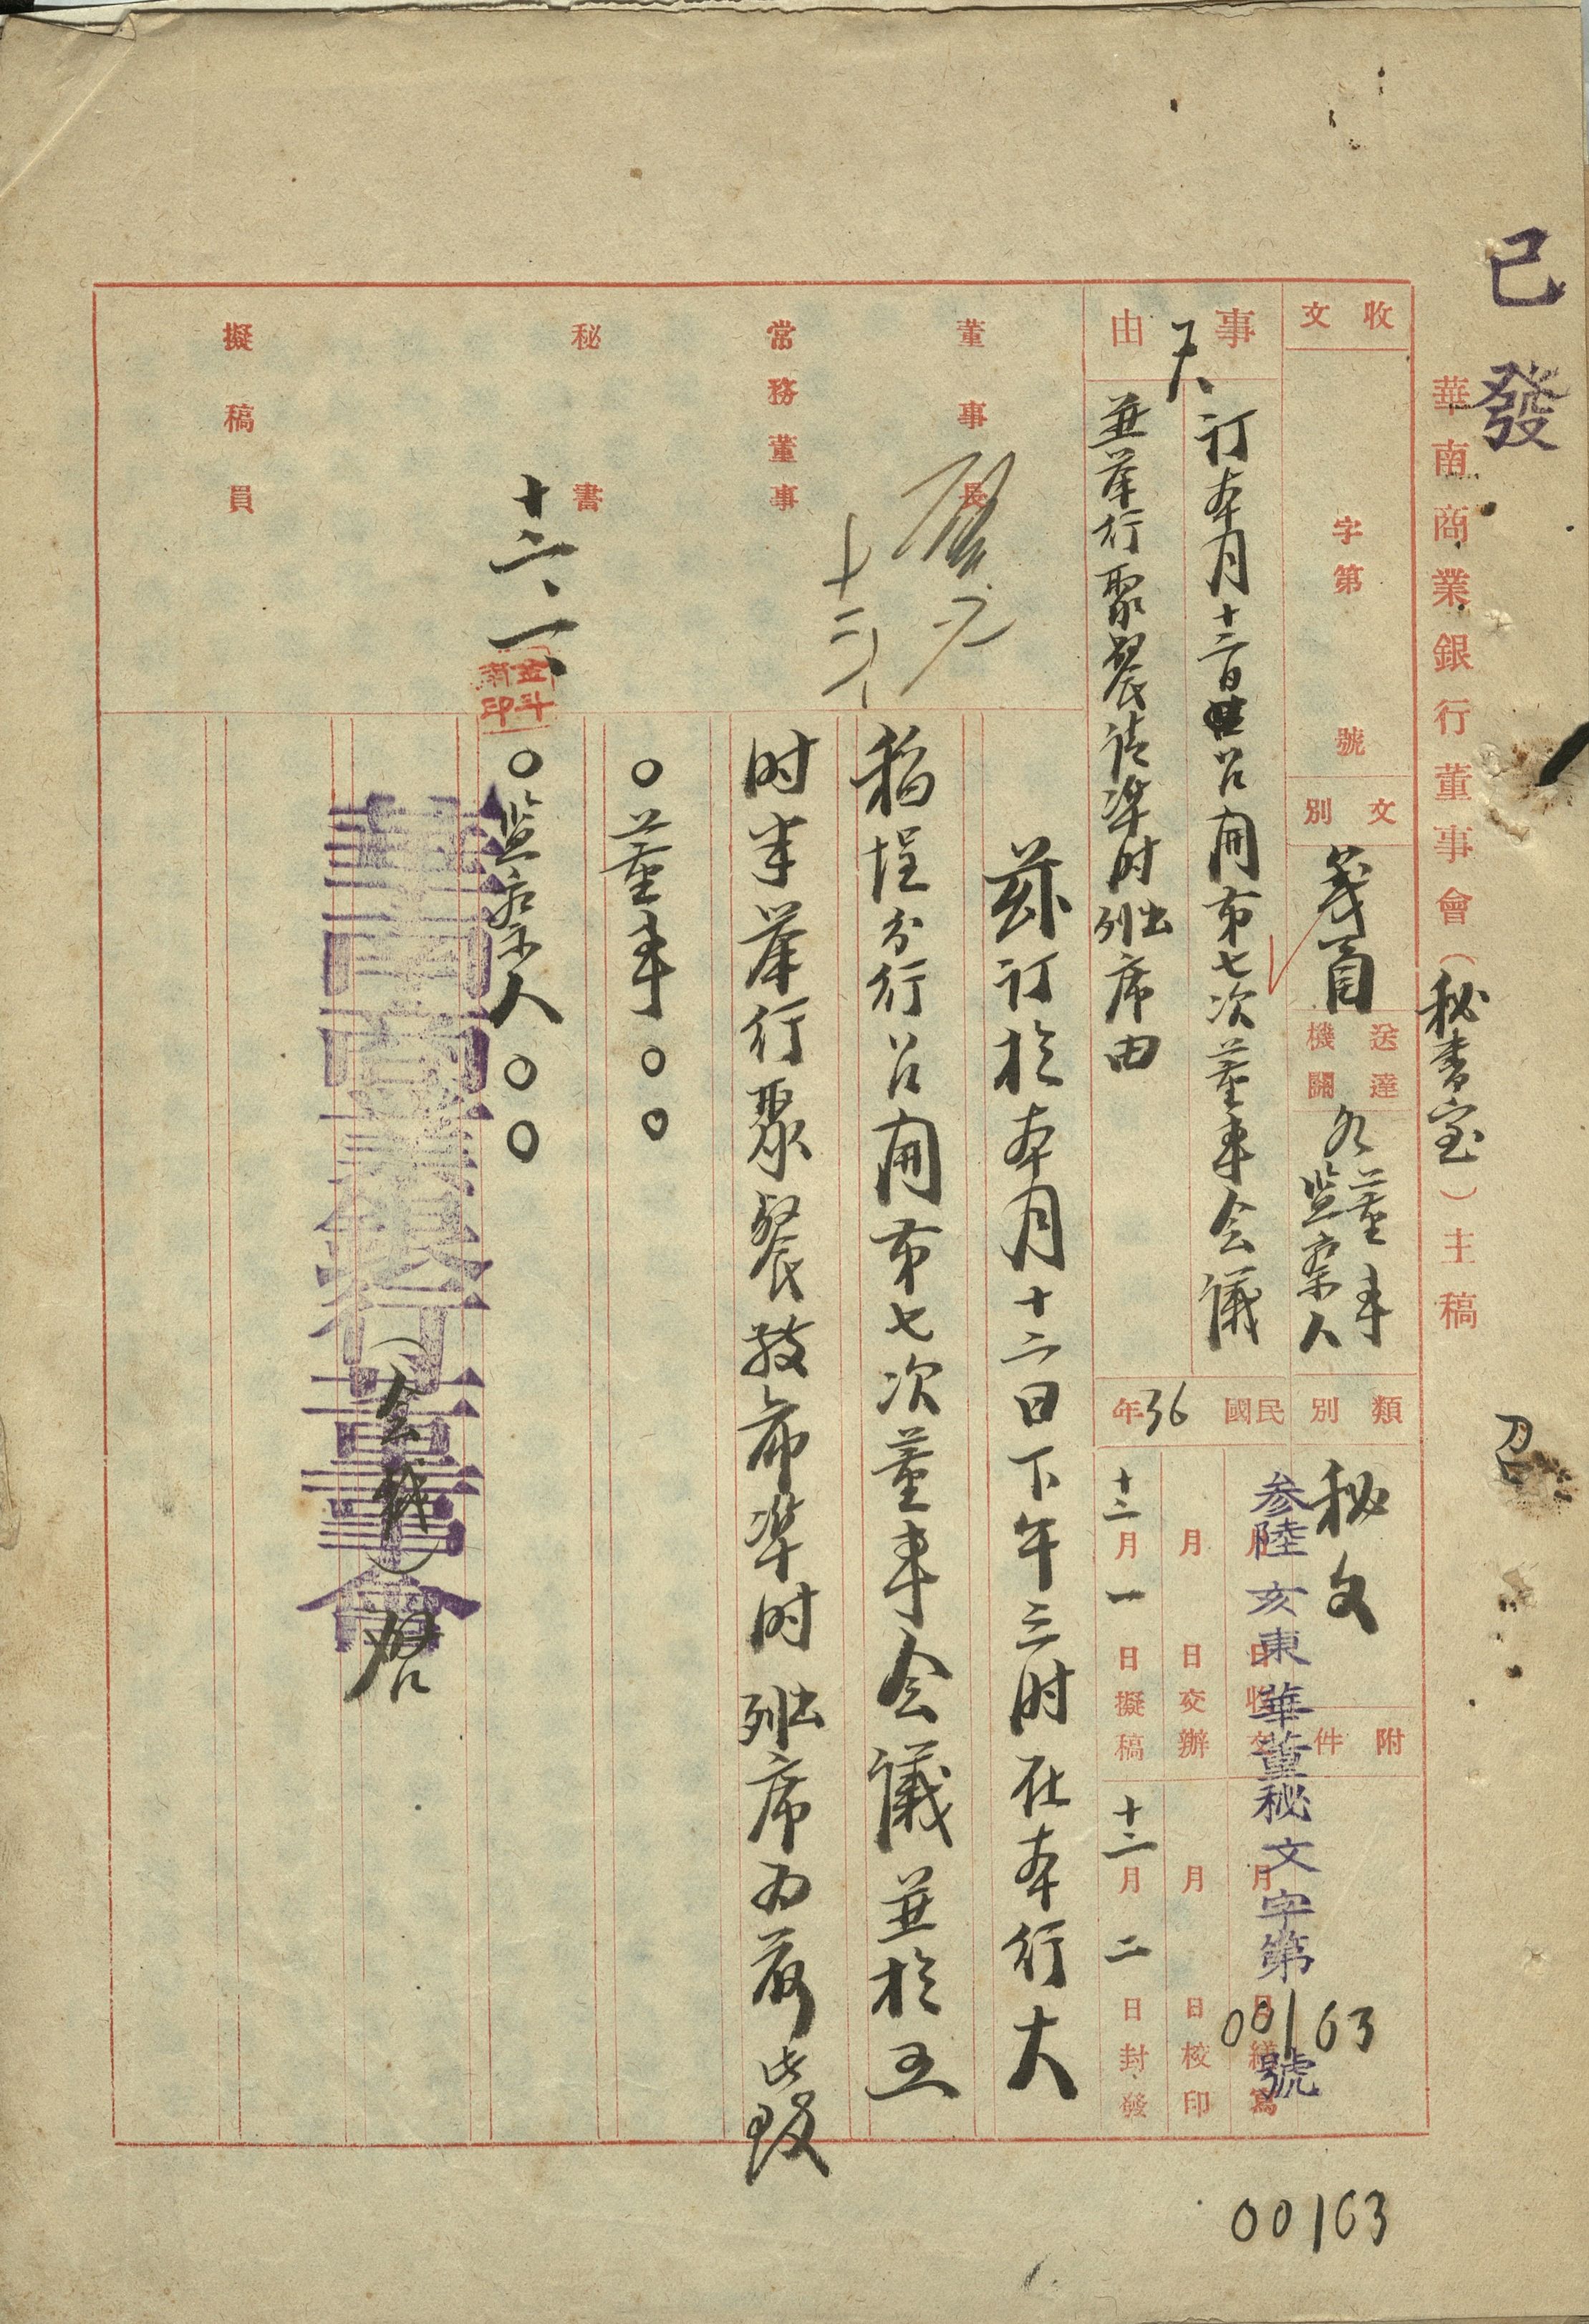 已發
華南商業銀行董事會（秘書室）主稿
收文
字第　號
文別
箋函
送達機關
各董事
監察人
類別
秘文
附件
事由
訂本月十二日召開第七次董事会議
並举行聚餐请準时出列席由
民國36年
月　日收文
月　日交辦
十二月一日擬稿
月　日繕寫
月　日校印
十二月二日封發
参陸亥東華董秘文字第00163號
董事長
常務董事
秘書
十二、一、
擬稿員
兹訂於本月十二日下午三时在本行大
稻埕分行召開第七次董事会議並於五
时半举行聚餐敬希準时出列席为荷此致
○董事○○
○監察人○○
華南商業銀行董事會（全銜）启
00163